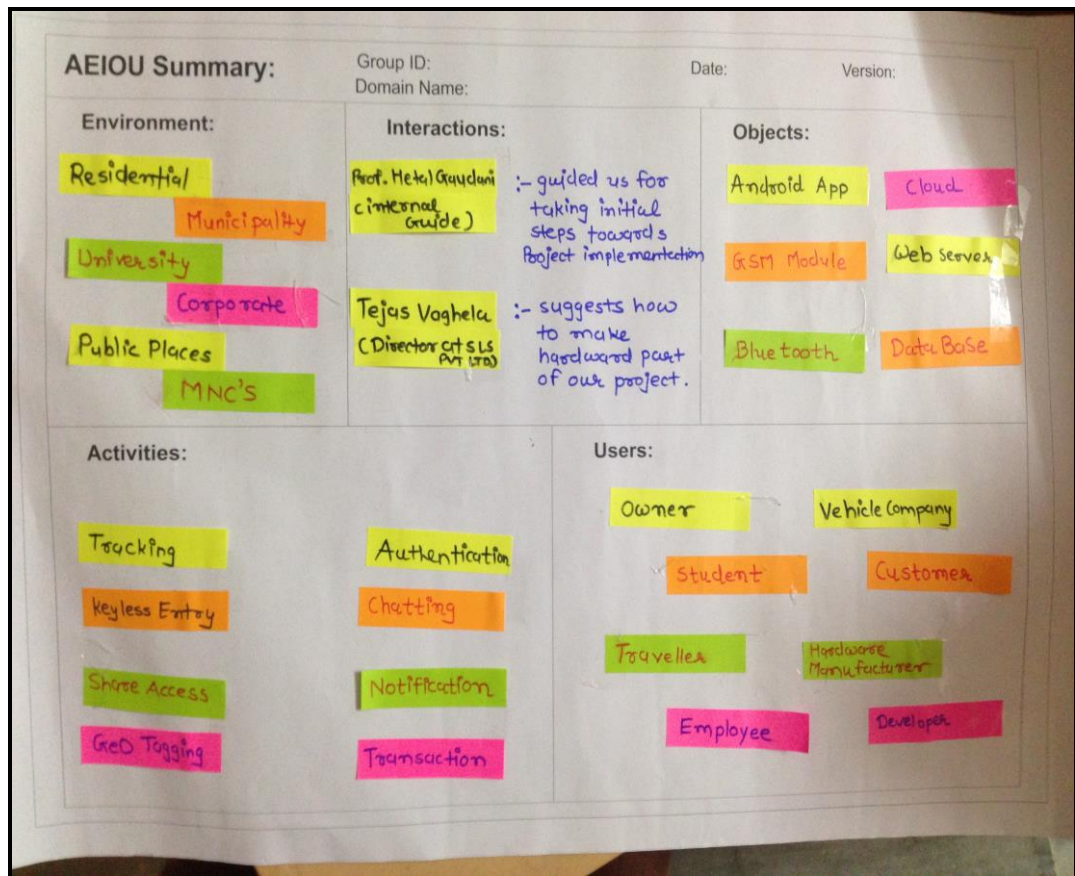 AEIOU Summary:
Group ID:
Domain Name:
Date:
Version:
Environment:
Residential
Municipality
University
Corporate
Public Places
MNC'S
Interactions:
Prof. Hetal Gaudani
(internal
Guide)
:- guided us for
taking initial
steps towards
Project implementation
Tejas Vaghela
(Director at SLS
PVT LTD)
:- suggests how
to make
hardward part
of our project.
Objects:
Android App
Cloud
GSM Module
Web server
Bluetooth
DataBase
Activities:
Tracking
Authentication
keyless Entry
Chatting
Share Access
Notification
GeO Tagging
Transaction
Users:
Owner
Vehicle Company
Student
Customer
Traveller
Hardware
Manufacturer
Employee
Developer